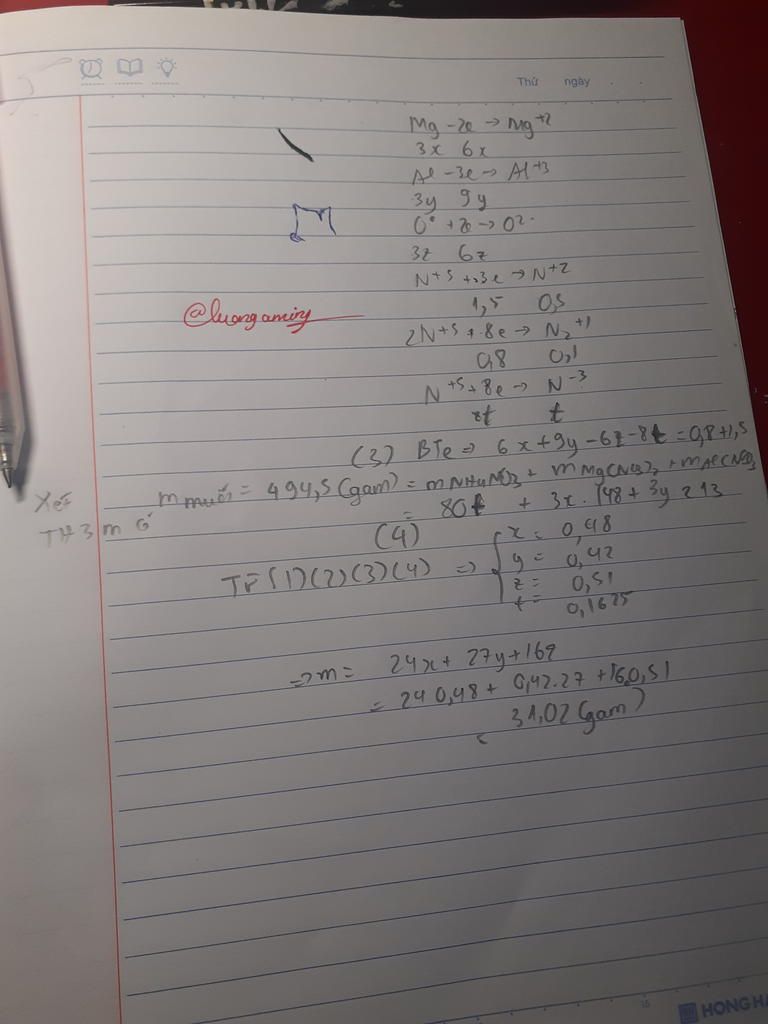 Thứ ngày
Mg - 2e → Mg+2
3x 6x
Al - 3e → Al+3
3y 9y
O° + 2e → O2-
3z 6z
N+5 + 3e → N+2
1,5 0,5
@luongaming
2N+5 + 8e → N2+1
0,8 0,1
N+5 + 8e → N-3
8t t
(3) BTe => 6x + 9y - 6z - 8t = 0,8 + 1,5
Xét m muối = 494,5 (gam) = mNH4NO3 + mMg(NO3)2 + mAl(NO3)3
TH3 m Ở = 80t + 3x . 148 + 3y 213
(4)
Từ (1)(2)(3)(4) => x = 0,48
y = 0,42
z = 0,51
t = 0,1625
=> m = 24x + 27y + 16z
= 24 0,48 + 0,42.27 + 16.0,51
= 31,02 (gam)
HONG HA